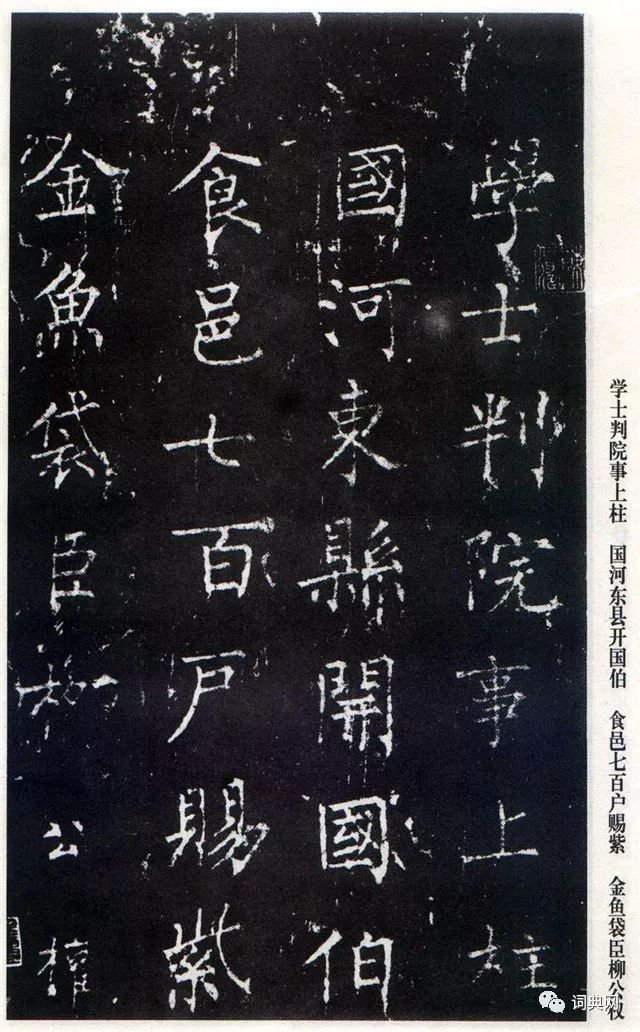 學士判院事上柱
國河東縣開國伯
食邑七百戶賜紫
金魚袋臣柳公權
学士判院事上柱 国河东县开国伯 食邑七百户赐紫 金鱼袋臣柳公权
词典网